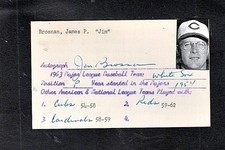 Brosnan, James P. "Jim"
Autograph Jim Brosnan
1963 Major League Baseball Team White Sox
Position P Year started in the Majors 1954
Other American & National League Teams Played with:
1. Cubs 54-58 2. Reds 59-62
3. Cardinals 58-59 4.